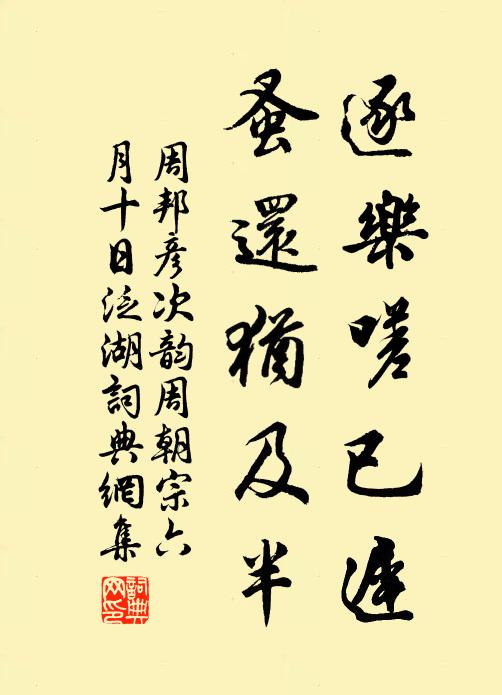 逐樂嗟已遲
蚤還猶及半
周邦彦次韵周朝宗六
月十日泛湖詞典網集